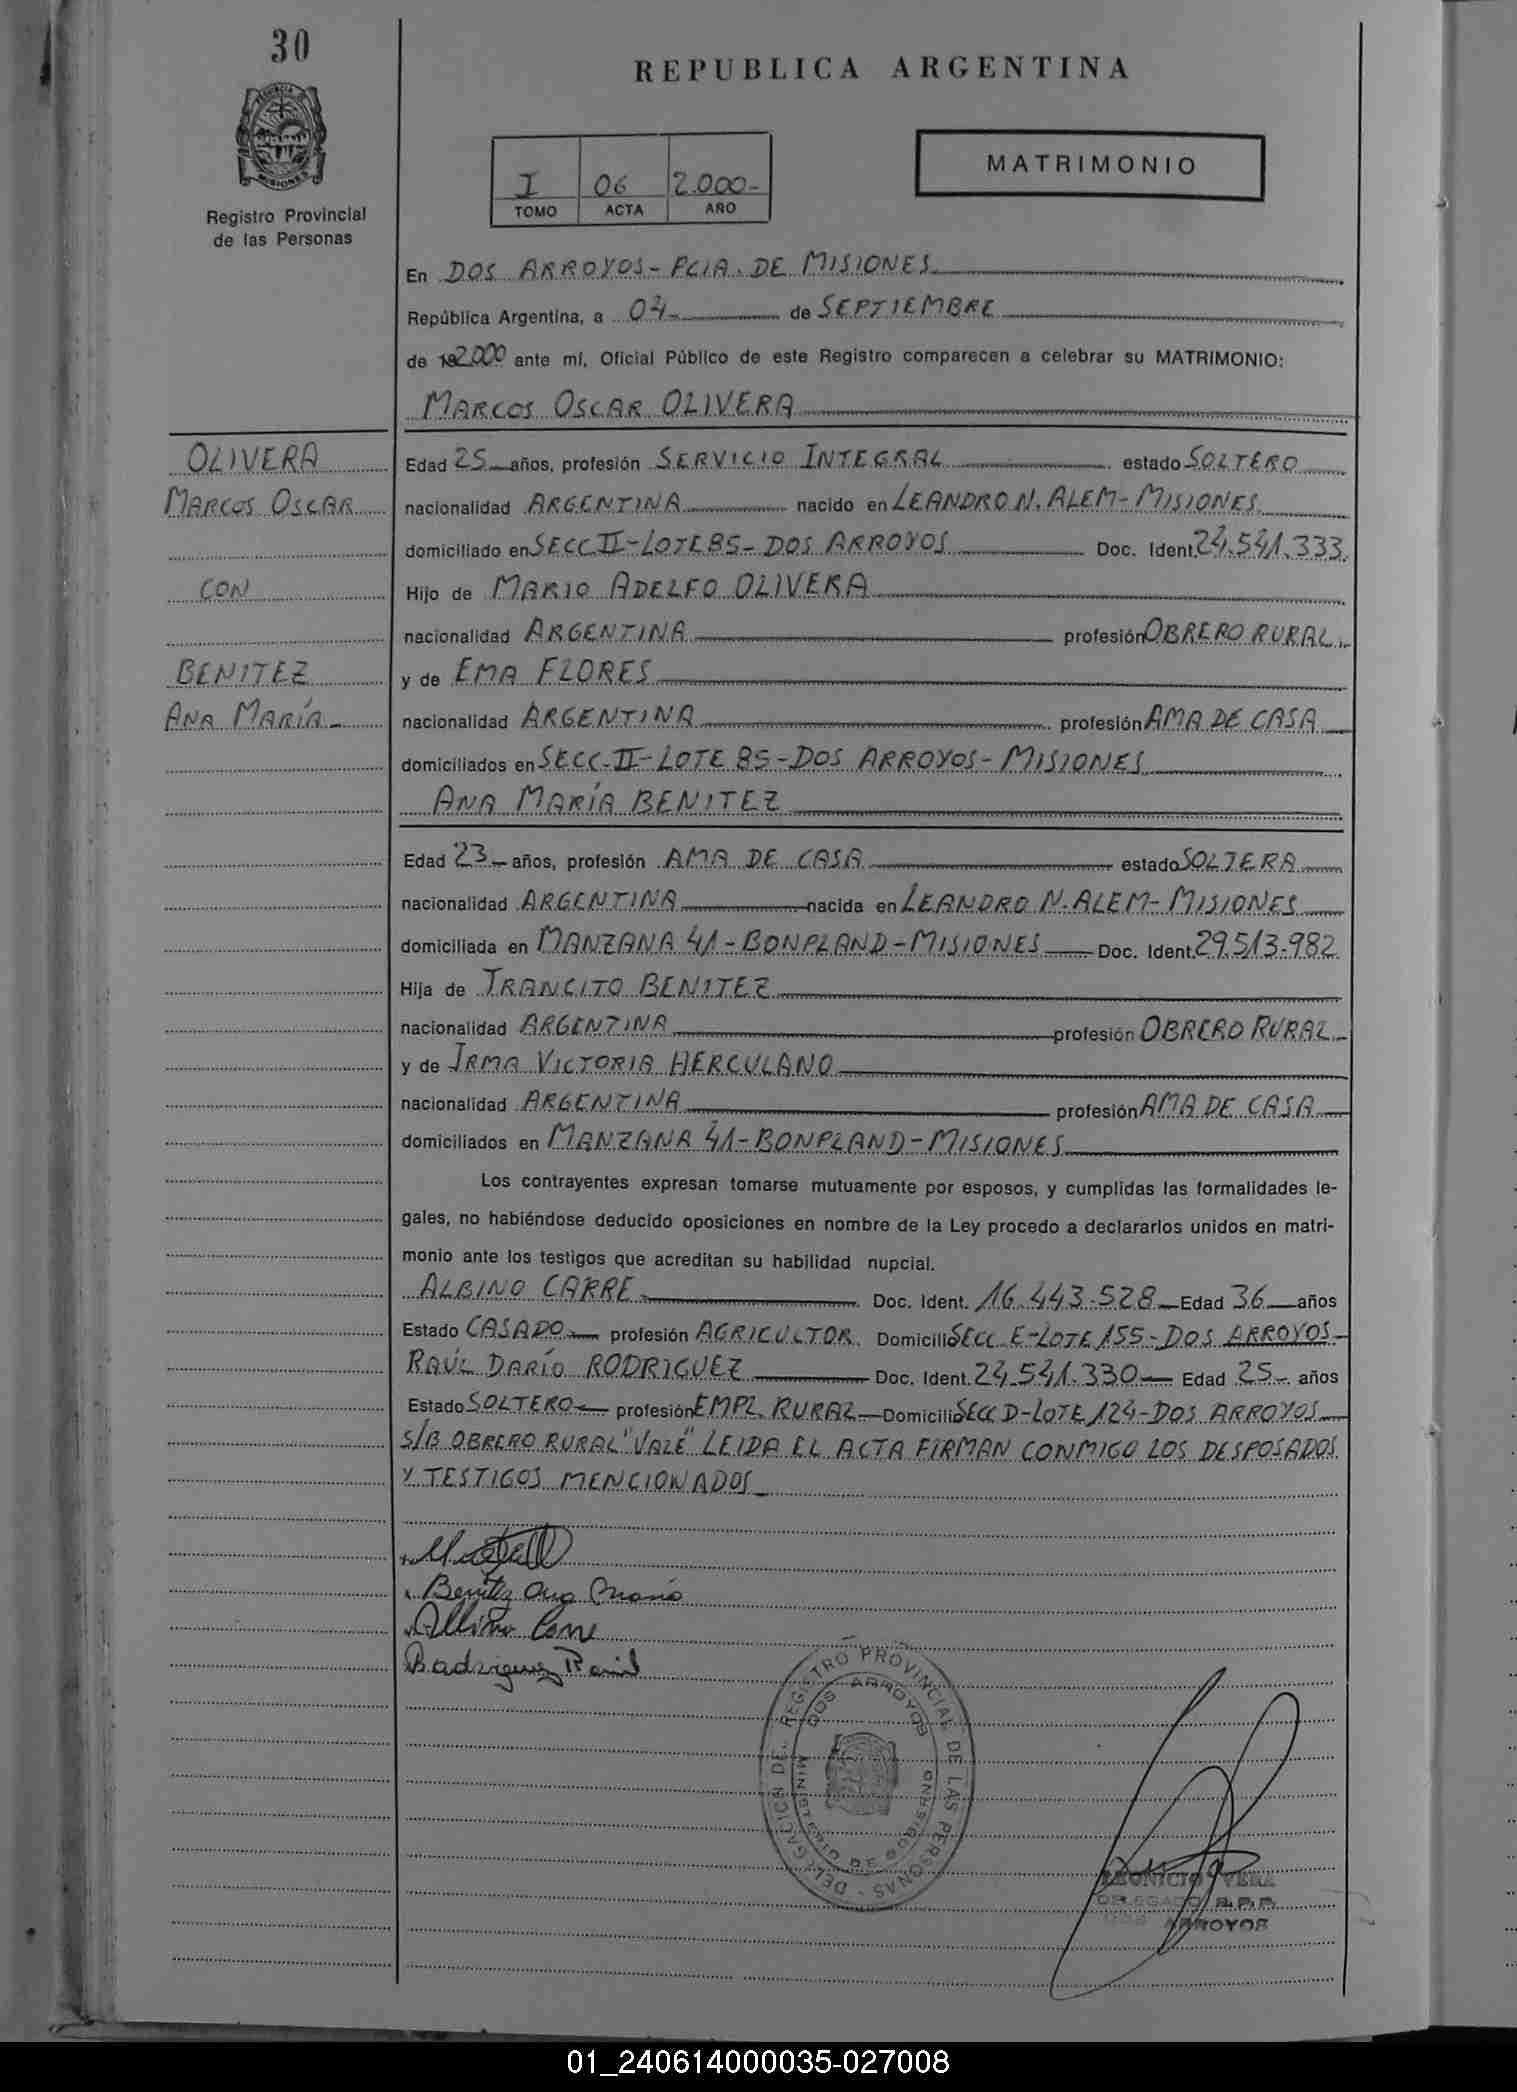 30
REPUBLICA ARGENTINA
PROVINCIA
MISIONES
MATRIMONIO
I 06 2.000-
TOMO ACTA AÑO
Registro Provincial
de las Personas
En DOS ARROYOS - PCIA. DE MISIONES
República Argentina, a 04 de SEPTIEMBRE
de 2.000 ante mí, Oficial Público de este Registro comparecen a celebrar su MATRIMONIO:
MARCOS OSCAR OLIVERA
OLIVERA
MARCOS OSCAR
CON
BENITEZ
ANA MARÍA -
Edad 25 años, profesión SERVICIO INTEGRAL estado SOLTERO
nacionalidad ARGENTINA nacido en LEANDRO N. ALEM - MISIONES
domiciliado en SECC II - LOTE 85 - DOS ARROYOS Doc. Ident. 24.541.333.
Hijo de MARIO ADELFO OLIVERA
nacionalidad ARGENTINA profesión OBRERO RURAL
y de EMA FLORES
nacionalidad ARGENTINA profesión AMA DE CASA
domiciliados en SECC. II - LOTE 85 - DOS ARROYOS - MISIONES
ANA MARÍA BENITEZ
Edad 23 años, profesión AMA DE CASA estado SOLTERA
nacionalidad ARGENTINA nacida en LEANDRO N. ALEM - MISIONES
domiciliada en MANZANA 41 - BONPLAND - MISIONES Doc. Ident. 29.513.982
Hija de TRANCITO BENITEZ
nacionalidad ARGENTINA profesión OBRERO RURAL
y de IRMA VICTORIA HERCULANO
nacionalidad ARGENTINA profesión AMA DE CASA
domiciliados en MANZANA 41 - BONPLAND - MISIONES
Los contrayentes expresan tomarse mutuamente por esposos, y cumplidas las formalidades le-
gales, no habiéndose deducido oposiciones en nombre de la Ley procedo a declararlos unidos en matri-
monio ante los testigos que acreditan su habilidad nupcial.
ALBINO CARRE Doc. Ident. 16.443.528 Edad 36 años
Estado CASADO profesión AGRICULTOR Domicilio SECC. E - LOTE 155 - DOS ARROYOS
RAÚL DARÍO RODRIGUEZ Doc. Ident. 24.541.330 Edad 25 años
Estado SOLTERO profesión EMPL. RURAL Domicilio SECC D - LOTE 124 - DOS ARROYOS
S/B OBRERO RURAL "VALE" LEIDA EL ACTA FIRMAN CONMIGO LOS DESPOSADOS
Y TESTIGOS MENCIONADOS
Benitez Ana Maria
Albino Carre
Rodriguez Raul
DELEGACION DE REGISTRO PROVINCIAL DE LAS PERSONAS
DOS ARROYOS
MINISTERIO DE GOBIERNO
LEONICIO VERA
DELEGADO R.P.P.
DOS ARROYOS
01_240614000035-027008